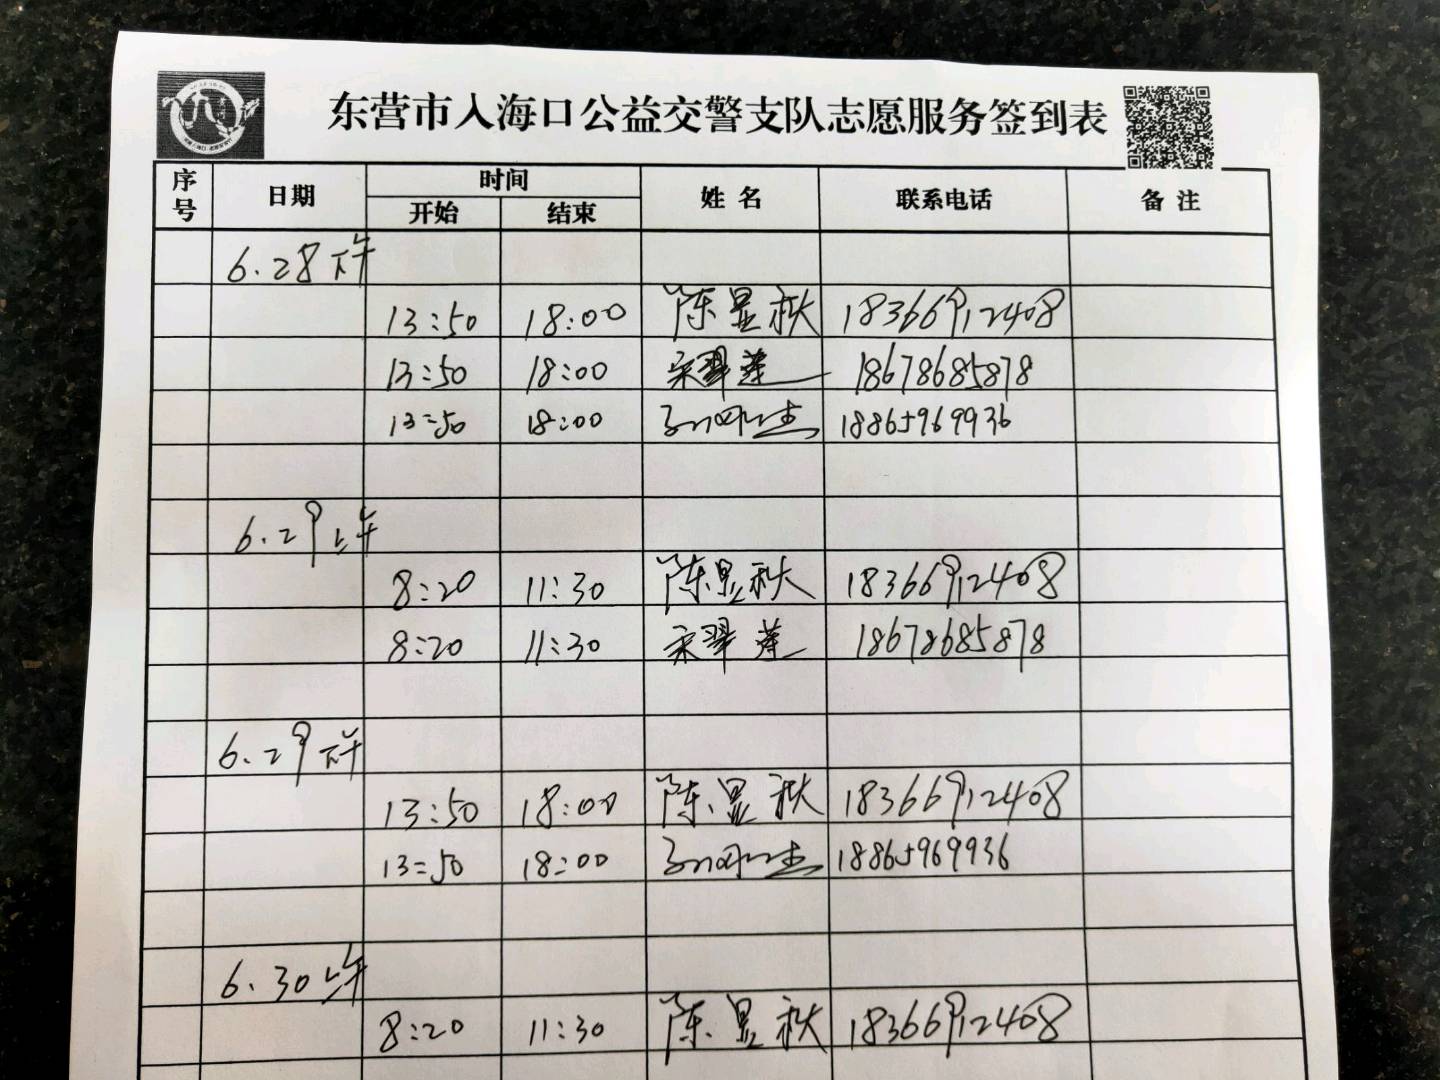 东营市入海口公益交警支队志愿服务签到表
序号 日期 时间 姓名 联系电话 备注
开始 结束
6.28下午
13:50 18:00 陈显秋 18366912408
13:50 18:00 宋翠莲 18678685878
13:50 18:00 18865969936
6.29上午
8:20 11:30 陈显秋 18366912408
8:20 11:30 宋翠莲 18678685878
6.29下午
13:50 18:00 陈显秋 18366912408
13:50 18:00 18865969936
6.30上午
8:20 11:30 陈显秋 18366912408